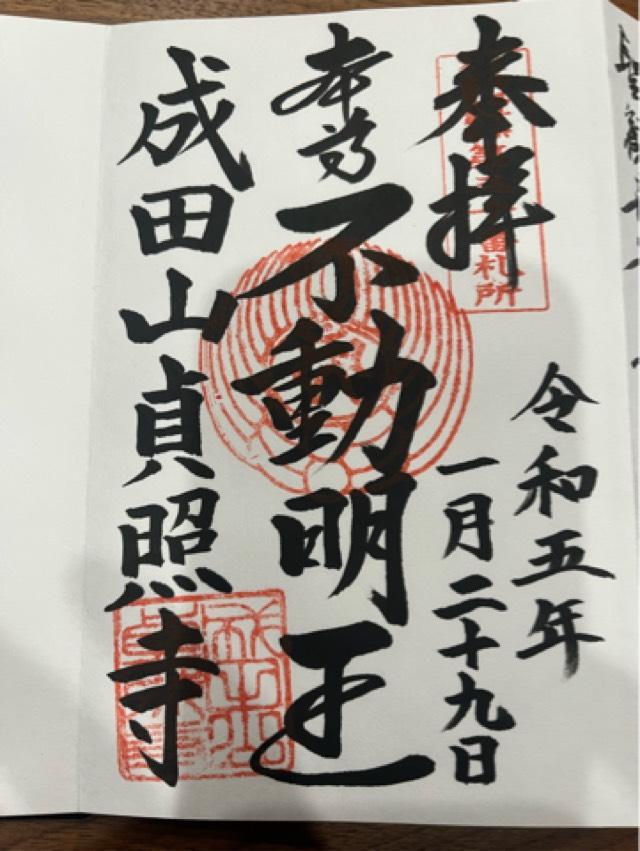 奉拝
令和五年
一月二十九日
本尊
不動明王
成田山貞照寺
番札所